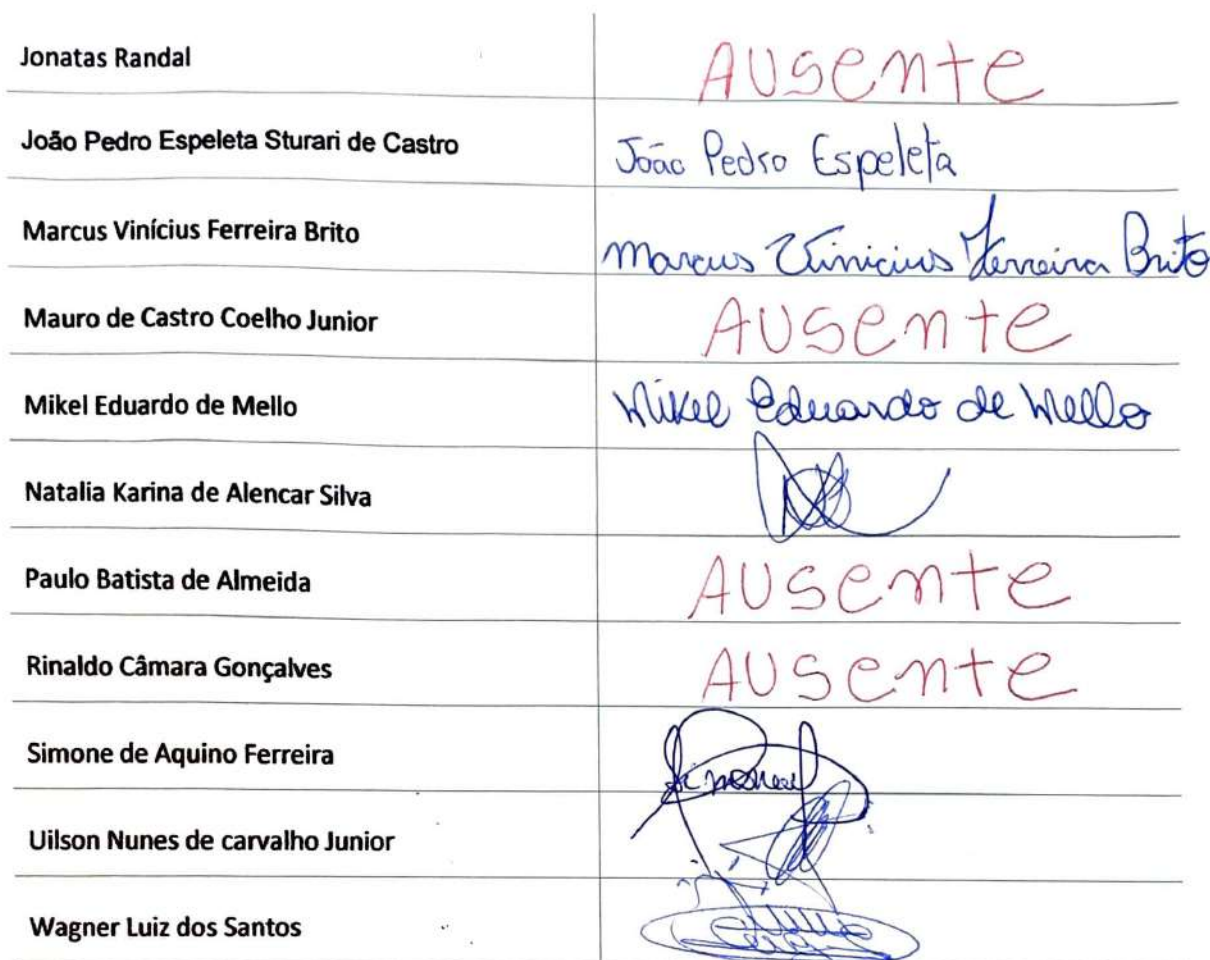 Jonatas Randal AUSENTE
João Pedro Espeleta Sturari de Castro João Pedro Espeleta
Marcus Vinícius Ferreira Brito Marcus Vinicius Ferreira Brito
Mauro de Castro Coelho Junior AUSENTE
Mikel Eduardo de Mello Mikel Eduardo de Mello
Natalia Karina de Alencar Silva
Paulo Batista de Almeida AUSENTE
Rinaldo Câmara Gonçalves AUSENTE
Simone de Aquino Ferreira
Uilson Nunes de carvalho Junior
Wagner Luiz dos Santos